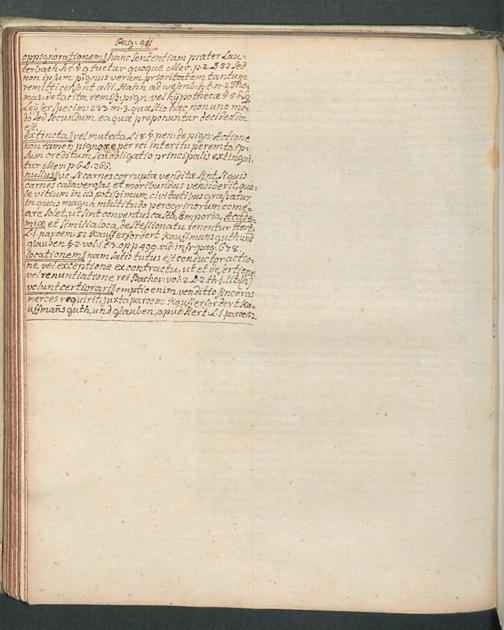 Pag. 911
oppignorationem] hanc sententiam præter Lau-
terbach. h.t. § 9 tuetur quoque Mev. p. 2. d. 52. sed
non ipsum pignus verum prioritatem tantum
remitti censent alii. Hahn ad wesenb. h.t. n. 2. Tho-
mas. de tacita remiss. pign. vel hypothecæ
Leyser specim. 233 m. 3. quæstio hæc non uno mo-
do sed secundum ea quæ proponuntur decidenda
est.
extincta] vel mutata l. 18 § pen. de pign. Actione
non tamen pignoræ perrei interitu perempta ip-
sum creditum, seu obligatio principalis extingui-
tur Mev. p. 6. d. 266.
nullus] uc. N carnes corruptæ venditæ sint. Si quis
carnes cadaverosas et moribundas vendiderit, qua-
le vitium in iis potissimum civitatibus grassatur
in quas magna multitudo peregrinorum comme-
are solet, ut sint conventus, emporia, Acade-
miæ et similia loca, de stellionatu tenentur Hert.
l. 1. paroem. 52. Kauff erfordert Kauffmans guth und
glauben. § 2. vol. 1. t. 3. op. p. 499. vid. infr. pag. 678.
locationem] nam satis tutus est conductor actio-
ne vel exceptione ex contractu, ut et desertione
vel renuntiatione rei Bachov. vol. 2. d. 2. th. 1. lit. h.
volunt certiorari] emptio enim venditio sinceras
merces requirit, juxta paroem: Kauff erfordert Ka-
uffmans guth, und glauben, apud Hert. l. 1. paroe. 52.